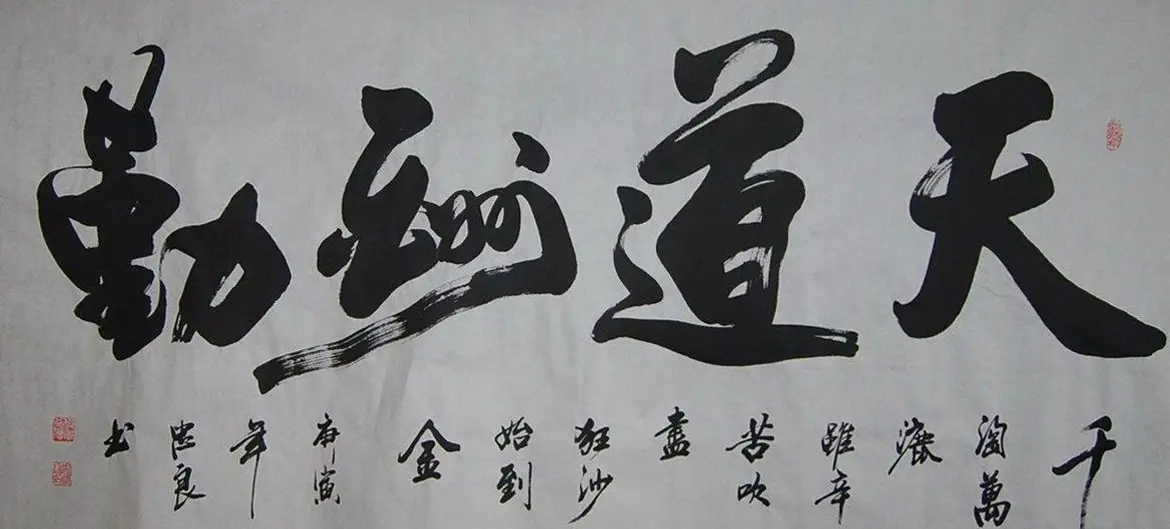 天道酬勤
千淘萬漉雖辛苦吹盡狂沙始到金
庚寅年忠良书